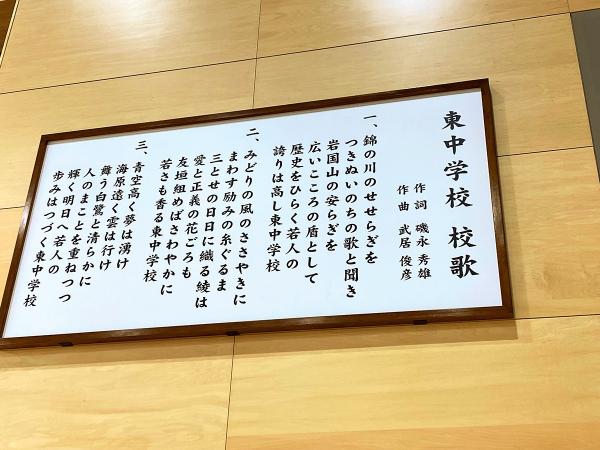 東中学校 校歌
作詞 磯永 秀雄
作曲 武居 俊彦
一、錦の川のせせらぎを
つきぬいのちの歌と聞き
岩国山の安らぎを
広いこころの盾として
歴史をひらく若人の
誇りは高し東中学校
二、みどりの風のささやきに
まわす励みの糸ぐるま
三とせの日日に織る綾は
愛と正義の花ごろも
友垣組めばさわやかに
若さも香る東中学校
三、青空高く夢は湧け
海原遠く雲は行け
舞う白鷺と清らかに
人のまことを重ねつつ
輝く明日へ若人の
歩みはつづく東中学校